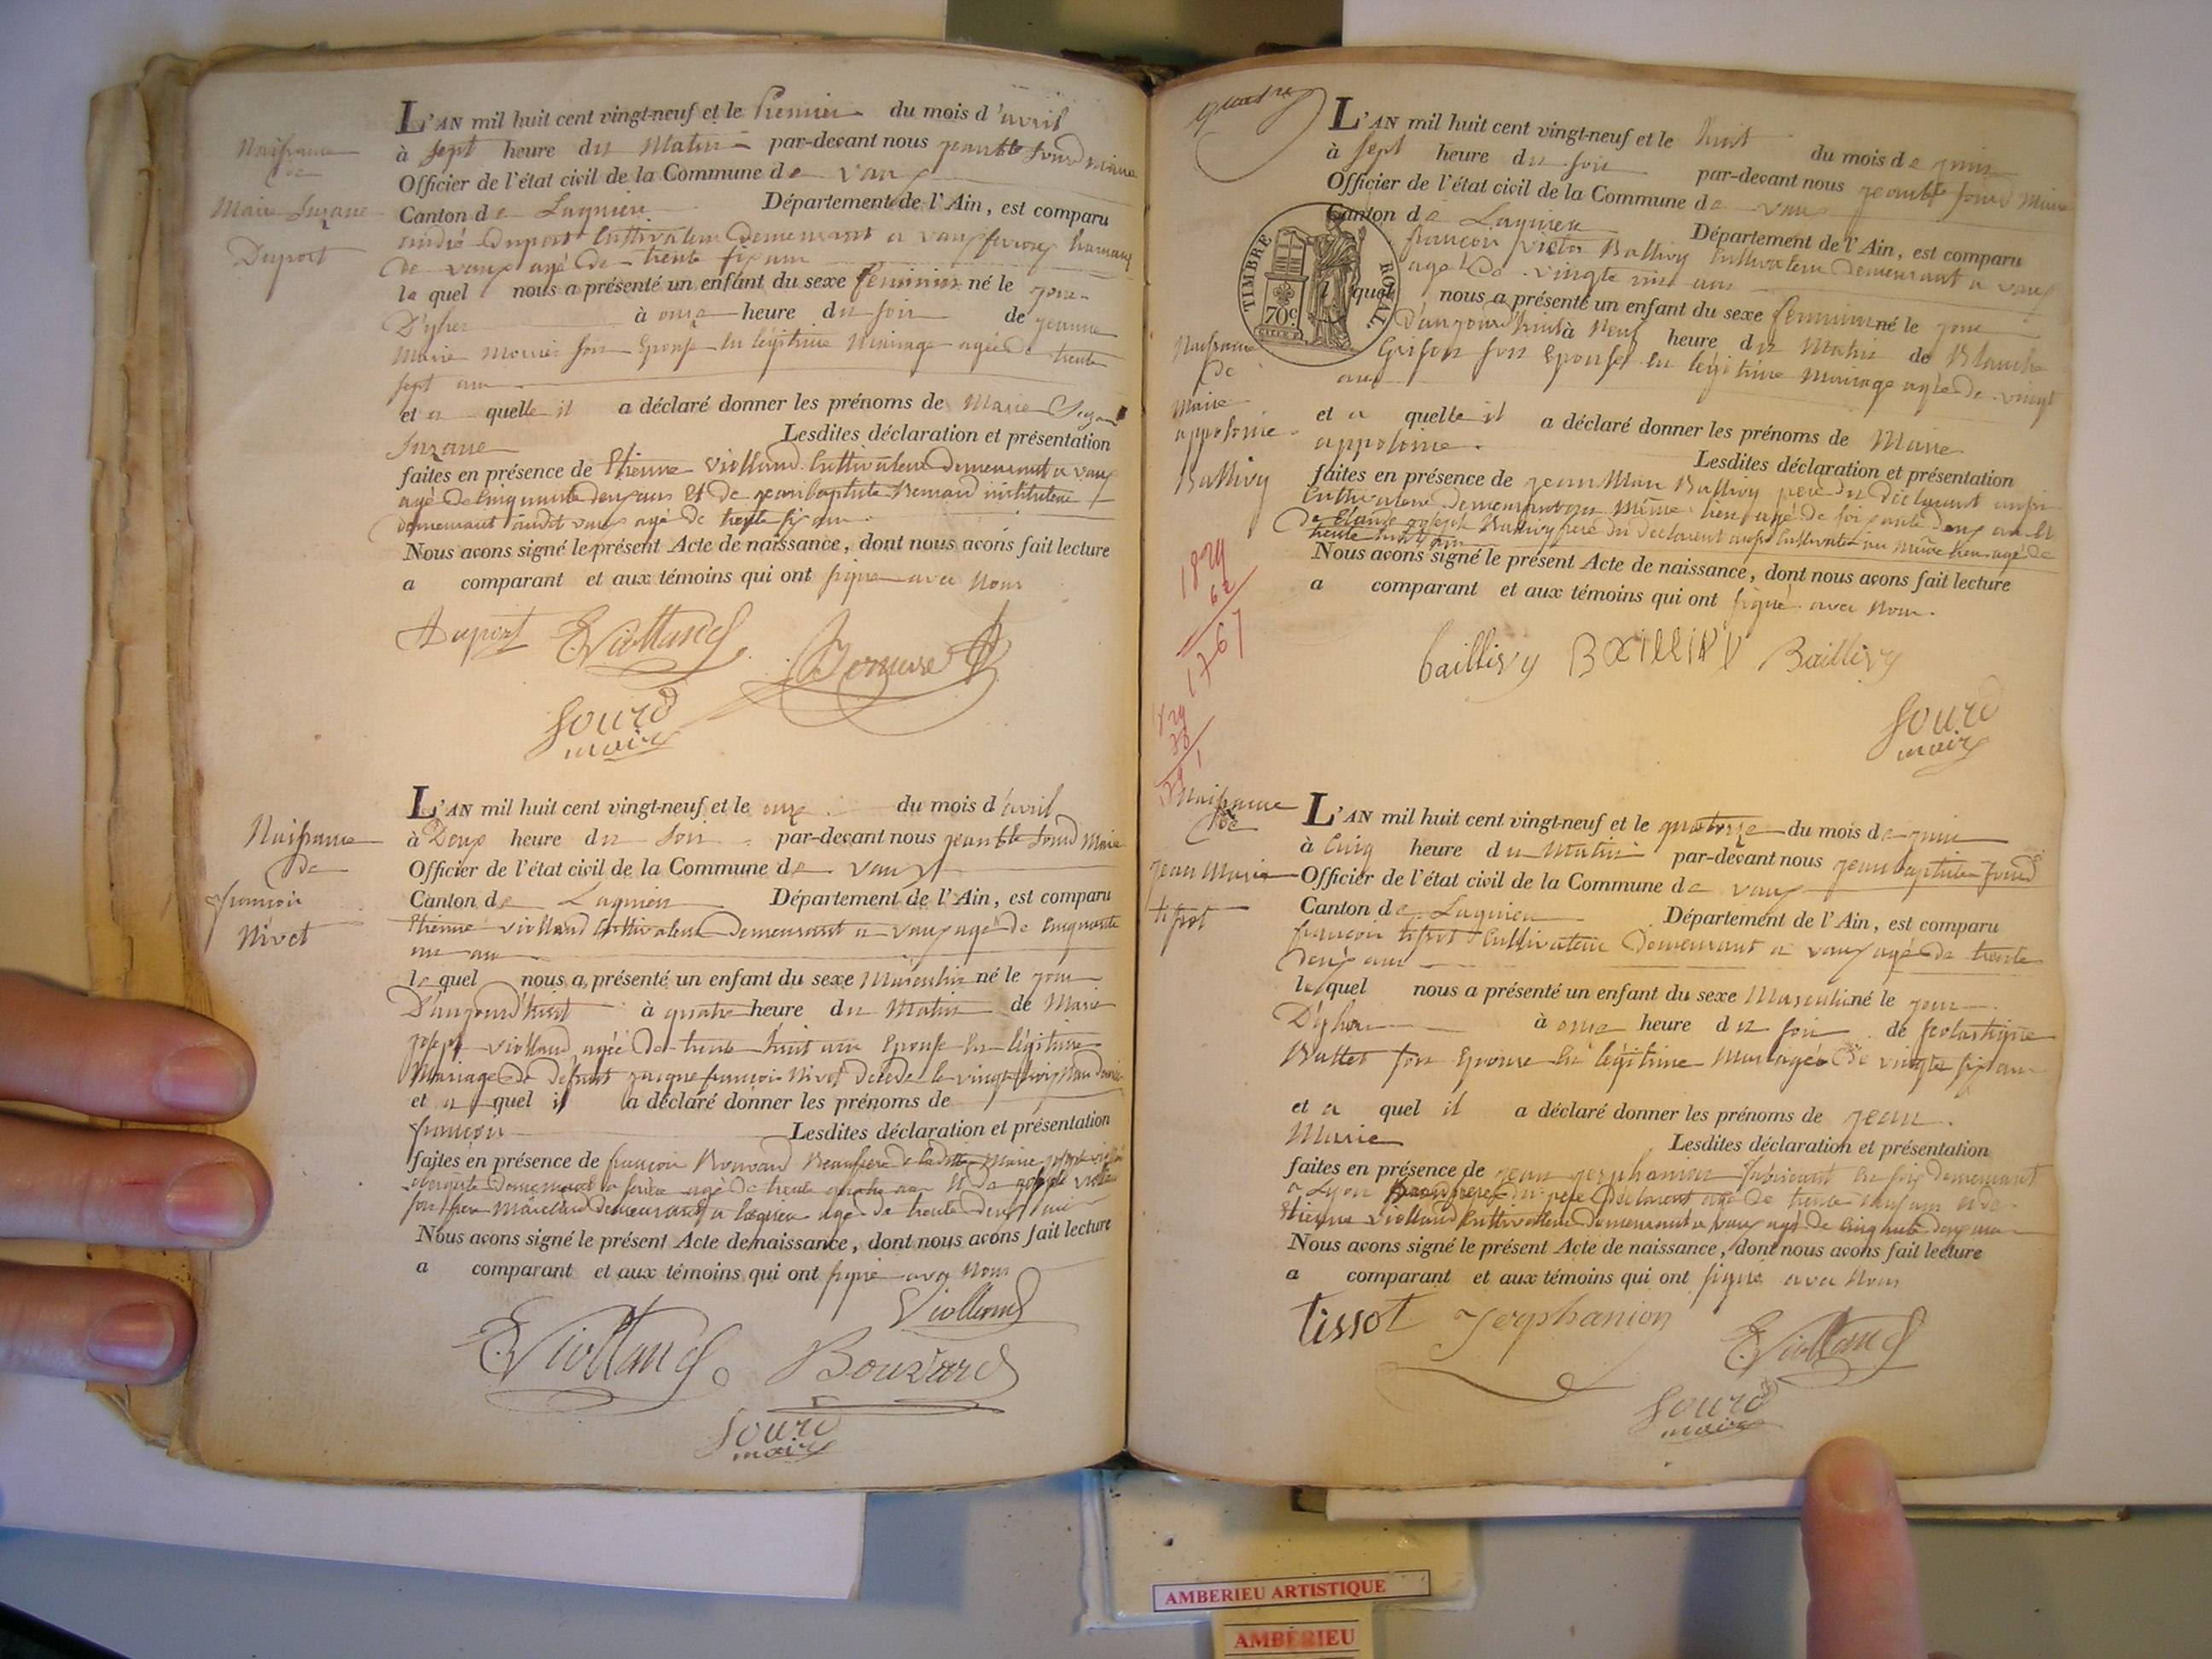 Naissance
de
Marie Suzane
Duport
L'AN mil huit cent vingt-neuf et le Premier du mois d'avril
à sept heure du Matin par-devant nous jean bte sourd maire
Officier de l'état civil de la Commune de vaux
Canton de Lagnieu Département de l'Ain, est comparu
andré duport Cultivateur Demeurant a vaux hamaux
De vaux agé de trente six ans
le quel nous a présenté un enfant du sexe feminin né le jour
D'yher à onze heure du soir de jeanne
Marie son Epouse en légitime Mariage agée de trente
sept ans
et a quelle il a déclaré donner les prénoms de Marie
Suzane Lesdites déclaration et présentation
faites en présence de Etienne violland Cultivateur Demeurant a vaux
agé de Cinquante deux ans Et de jean baptiste instituteur
Demeurant audit vaux agé de trente six ans
Nous avons signé le présent Acte de naissance, dont nous avons fait lecture
a comparant et aux témoins qui ont signé avec Nous
Duport EViolland
Sourd
maire
Naissance
de
françois
Nivet
L'AN mil huit cent vingt-neuf et le onze du mois d'avril
à Deux heure du Soir par-devant nous jean bte Sourd Maire
Officier de l'état civil de la Commune de vaux
Canton de Lagnieu Département de l'Ain, est comparu
Etienne violland Cultivateur Demeurant a vaux agé de Cinquante
un ans
le quel nous a présenté un enfant du sexe Masculin né le jour
D'aujourd'huit à quatre heure du Matin de Marie
joseph violland agée De trente huit ans Epouse En légitime
Mariage De défunt jacque françois Nivet décédé le vingt trois
et a quel il a déclaré donner les prénoms de
françois Lesdites déclaration et présentation
faites en présence de françois Bouvard Beaufrere de ladite Marie joseph
agé de trente quatre ans Et de joseph violland
son frere Demeurant a lagnieu agé de trente deux ans
Nous avons signé le présent Acte de naissance, dont nous avons fait lecture
a comparant et aux témoins qui ont signé avec Nous
Violland
EViolland Bouvard
Sourd
maire
quatre
TIMBRE ROYAL
70c
Naissance
De
Marie
appolonie
Ballivy
L'AN mil huit cent vingt-neuf et le huit du mois de juin
à sept heure du soir par-devant nous jean bte sourd Maire
Officier de l'état civil de la Commune de vaux
Canton de Lagnieu Département de l'Ain, est comparu
françois victor Ballivy Cultivateur Demeurant a vaux
agé de vingte neuf ans
l quel nous a présenté un enfant du sexe feminin né le jour
D'aujourd'huit à Neuf heure du Matin de Blanche
Grison son Epouse En légitime Mariage agée de vingt
ans
et a quelle il a déclaré donner les prénoms de Marie
appolonie. Lesdites déclaration et présentation
faites en présence de jean Mari Ballivy pere du Déclarant aussi
Cultivateur Demeurant au Même lieu agé de soixante deux ans Et
De Claude joseph Ballivy frere du Declarant aussi Cultivateur au Même lieu agé de
trente huit ans
Nous avons signé le présent Acte de naissance, dont nous avons fait lecture
a comparant et aux témoins qui ont signé avec Nous.
1829
62
1767
baillivy BAILLIVY Baillivy
Sourd
maire
Naissance
De
jean Marie
tissot
L'AN mil huit cent vingt-neuf et le quatorze du mois de juin
à Cinq heure du Matin par-devant nous jean baptiste sourd
Officier de l'état civil de la Commune de vaux
Canton de Lagnieu Département de l'Ain, est comparu
françois tissot Cultivateur Demeurant a vaux agé de trente
Deux ans
le quel nous a présenté un enfant du sexe Masculin né le jour
D'yher à onze heure du soir de scolastique
Ballet son Epouse En légitime Mariage agée De vingte six ans
et a quel il a déclaré donner les prénoms de jean
Marie Lesdites déclaration et présentation
faites en présence de jean jerphanion fabricant En soie demeurant
a Lyon Beaufrere du pere Déclarant agé de trente ans et de
Etienne violland Cultivateur Demeurant a vaux agé de Cinquante deux ans
Nous avons signé le présent Acte de naissance, dont nous avons fait lecture
a comparant et aux témoins qui ont signé avec Nous
Tissot Jerphanion EViolland
Sourd
maire
AMBERIEU ARTISTIQUE
AMBÉRIEU